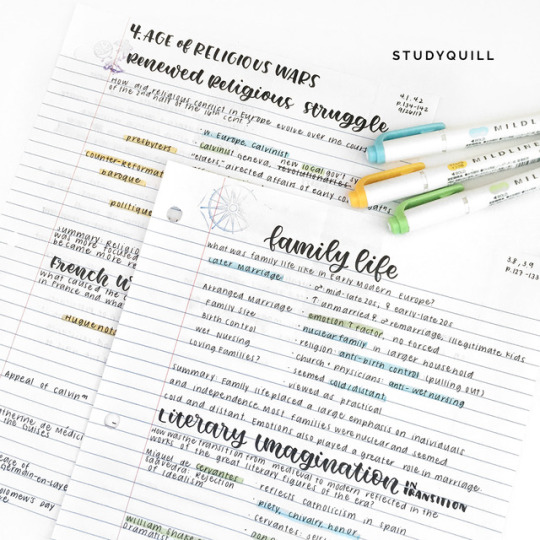 STUDYQUILL
4. AGE of RELIGIOUS WARS
Renewed Religious Struggle
4.1, 4.2
p.134-142
How did religious conflict in Europe evolve over the course
of the 2nd half of the 16th cent
presbyters
counter-reformat
baroque
politique
· W. Europe, calvinist
calvinist geneva, new local gov't
revolutionaries
"elders" directed affairs of early
summary: Religio
was more focused
became more re
French W
what caused the
in France and wha
Huguenots
Appeal of Calvin
Catherine de Médici
the Guises
Peace of
Germain-en-Laye
MILDL
MILDLINE
MIL
family life
3.8, 3.9
p.127-133
what was family life like in Early Modern Europe?
Later Marriage
· ♂ mid-late 20s, ♀ early-late 20s
· ↑ unmarried & remarriage, illegitimate kids
Arranged Marriage
· emotion ↑ factor, no forced
Family Size
· nuclear family in larger household
Birth Control
· religion anti-birth control (pulling out)
Wet Nursing
· church + physicians: anti-wet nursing
Loving Families?
· seemed cold/distant
· viewed as practical
Summary: Family life placed a large emphasis on individuals
and independence. Most families were nuclear and seemed
cold and distant. Emotions also played a greater role in marriage.
Literary Imagination IN TRANSITION
How was the transition from medieval to modern reflected in the
works of the great literary figures of the era?
Miguel de Cervantes
Saavedra: rejection
of idealism
· reflects catholicism in spain
· piety, chivalry, honor,
· cervantes:
William Shake
Dramatist